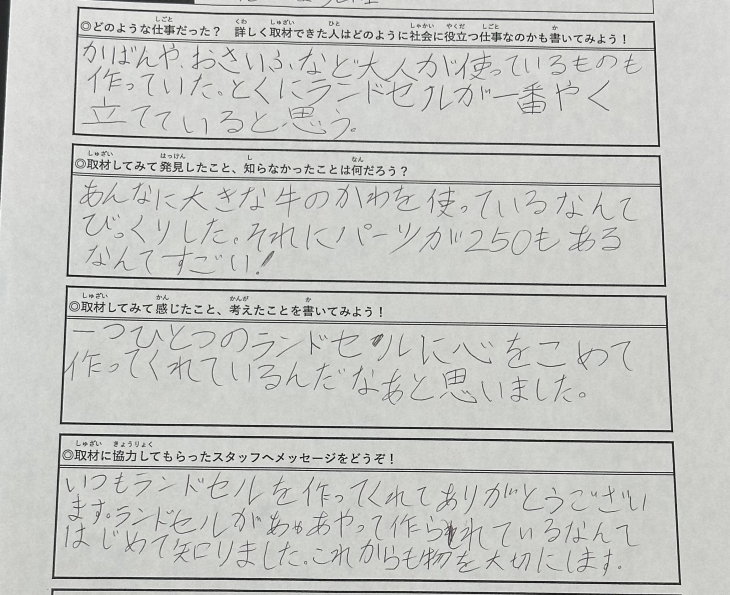 ◎どのような仕事だった？ 詳しく取材できた人はどのように社会に役立つ仕事なのかも書いてみよう！
かばんや、おさいふなど大人が使っているものも
作っていた。とくにランドセルが一番やく
立てていると思う。
◎取材してみて発見したこと、知らなかったことは何だろう？
あんなに大きな牛のかわを使っているなんて
びっくりした。それにパーツが250もある
なんてすごい！
◎取材してみて感じたこと、考えたことを書いてみよう！
一つひとつのランドセルに心をこめて
作ってくれているんだなあと思いました。
◎取材に協力してもらったスタッフへメッセージをどうぞ！
いつもランドセルを作ってくれてありがとうござい
ます。ランドセルがあぁあやって作られているなんて
はじめて知りました。これからも物を大切にします。